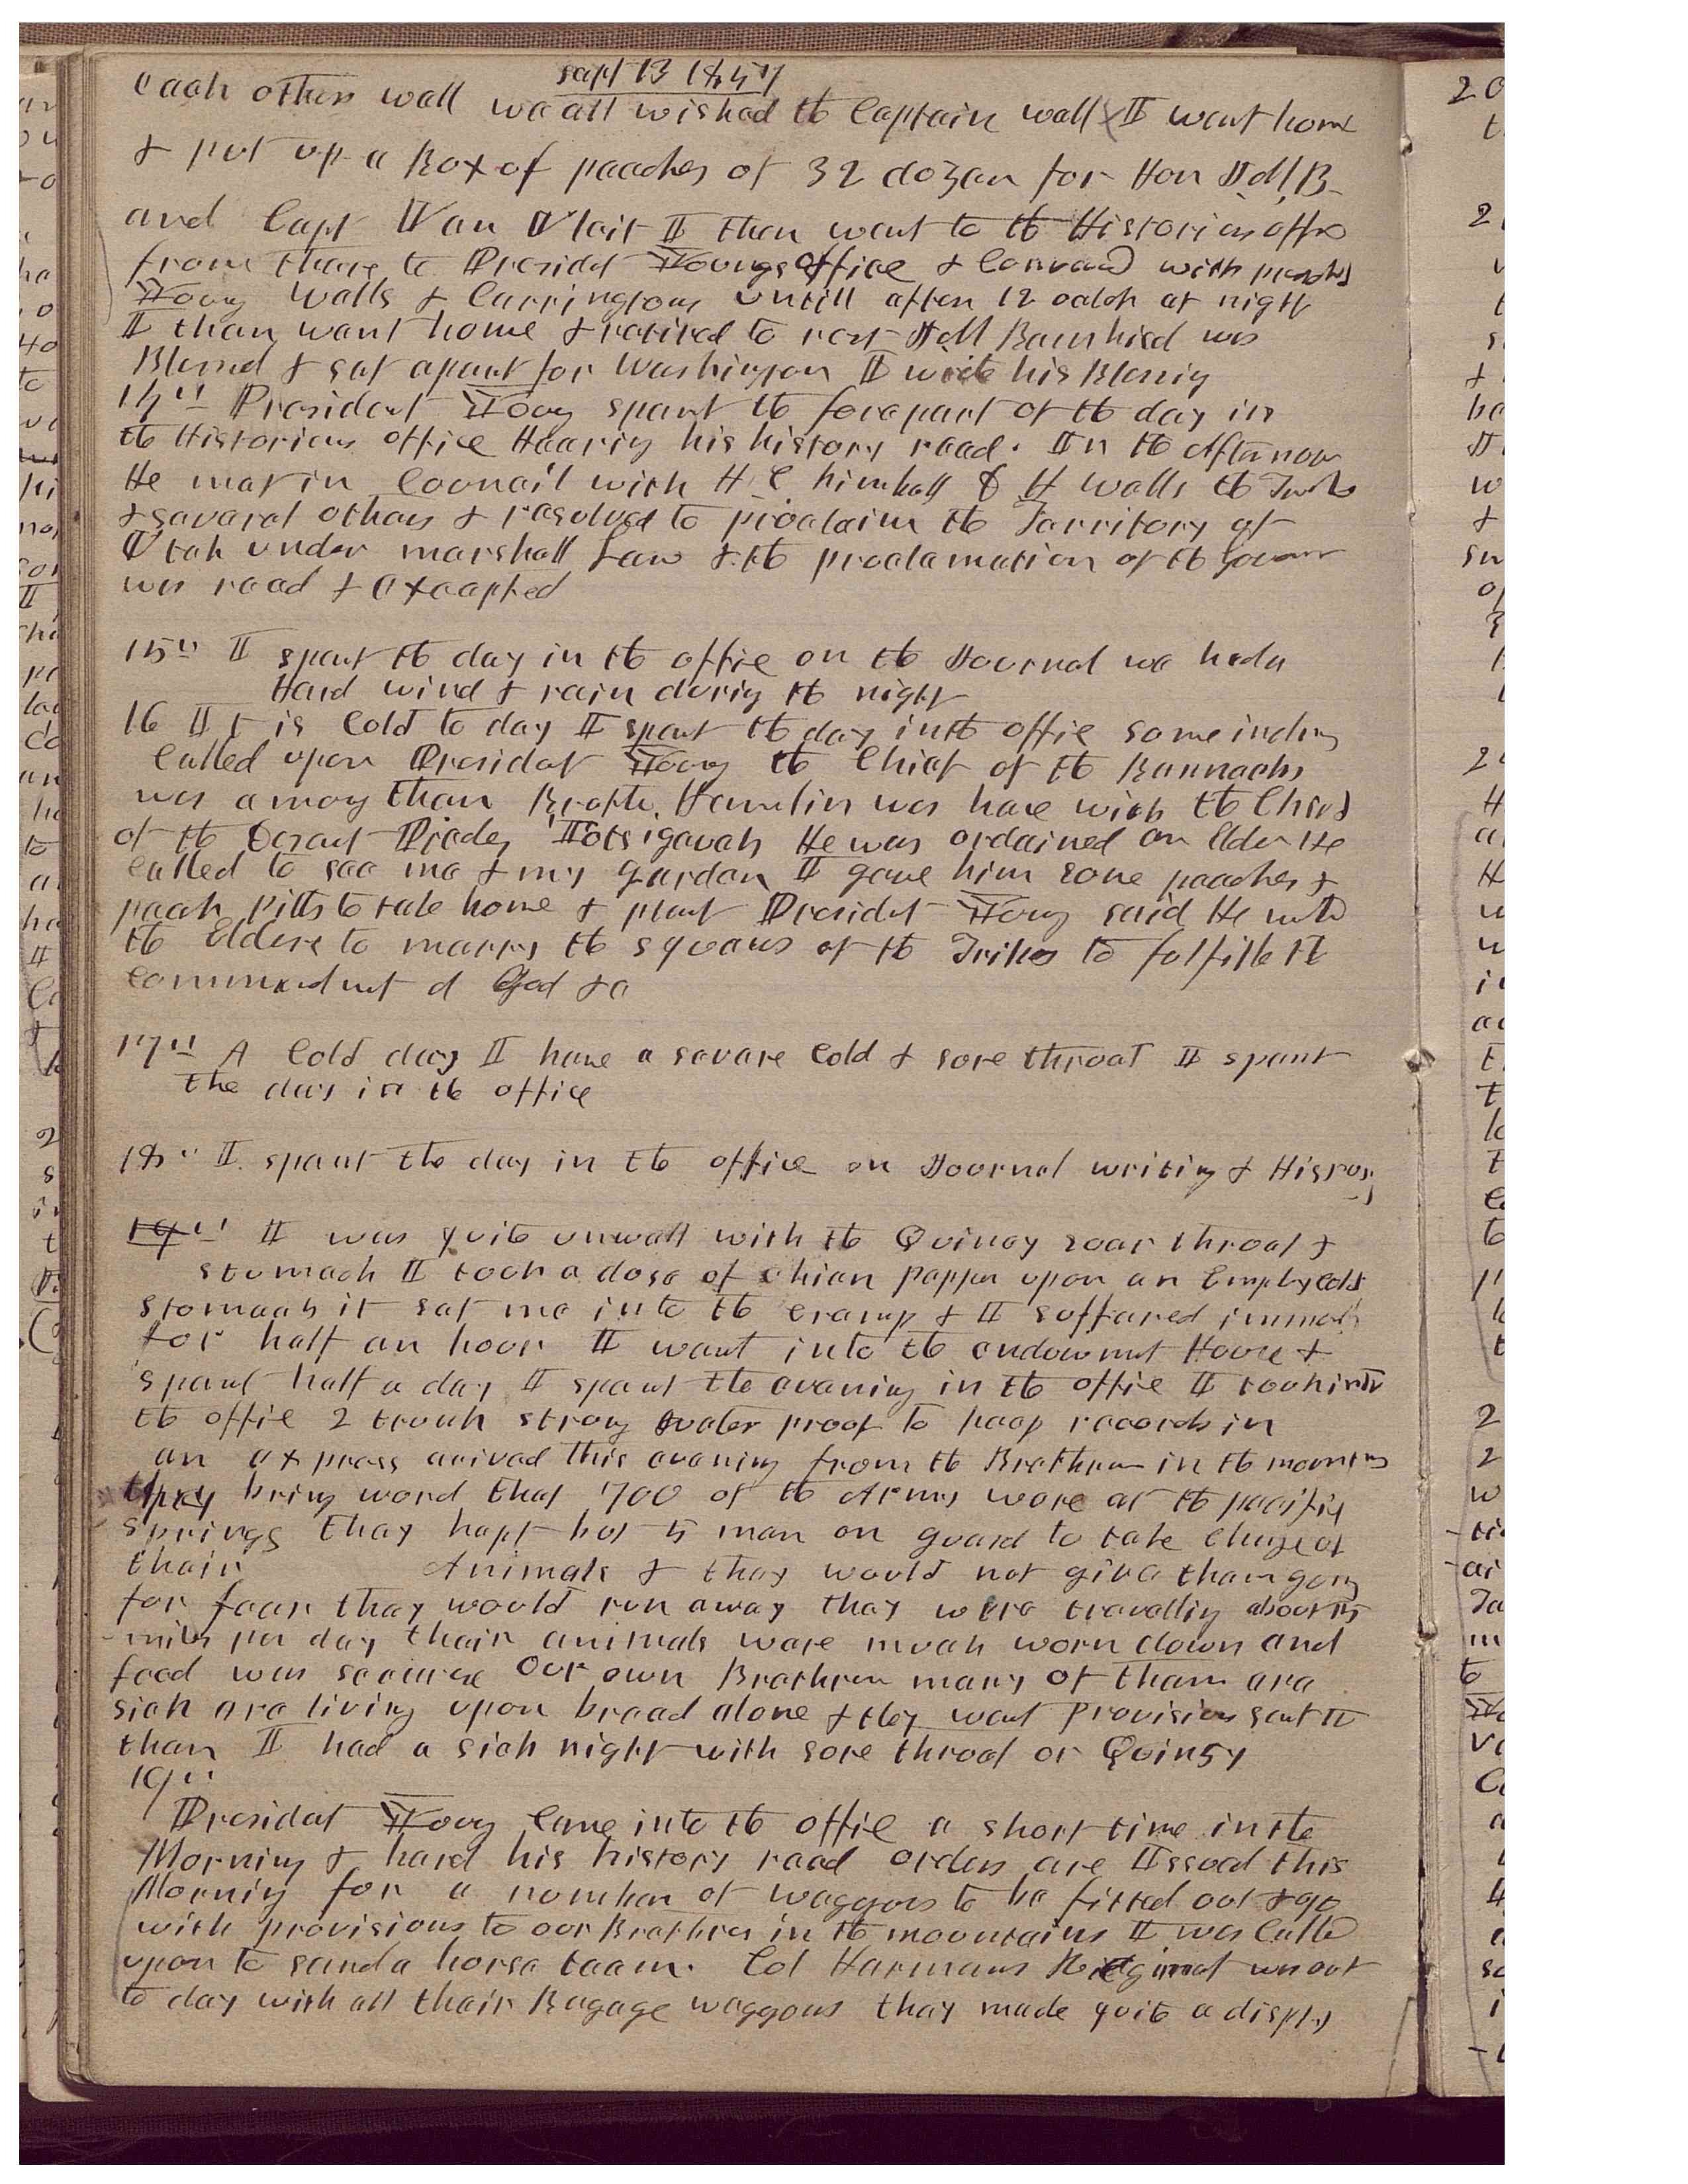 Sept 13 1857
each other well we all wished the Captain well I went home
& put up a Box of peaches of 32 dozen for Hon J M B
and Capt Van Vleit I then went to the Historians office
from there to Presidet Youngs office & Convered with
Young Wells & Carrington untill after 12 oclok at night
I then went home & retired to rest J M Bernhisel was
Blessed & set apart for Washington I wrote his Blessig
14th President Young spent the forepart of the day in
the Historians office Hearing his history read. In the afternoon
He met in Council with H C Kimball D H Wells the Twelve
& several others & resolved to proclaim the Territory of
Utah under marshall Law & the proclamation of the Govornr
was read & excepted
15th I spent the day in the office on the Journal we had a
Hard wind & rain durig the night
16 It is Cold to day I spent the day in the office some indians
Called upon Presidet Young the Chief of the Bannacks
was among them Brother Hamelin was here with the Chief
of the Desert Piedes Totsigavah He was ordained an Elder He
called to see me & my garden I gave him some peaches &
peach pitts to take home & plant Presidet Young said He
the Elders to marry the squaws of the Tribes to fulfill the
commandmet of God &c
17th A Cold day I have a severe Cold & sore throat I spent
the day in the office
18th I spent the day in the office on Journal writing & History
19th I was quite unwell with the Quincy soar throat &
stomach I took a dose of chian pepper upon an Empty cold
stomach it set me into the cramp & I suffered
for half an hour I went into the endowmet House &
spent half a day I spent the evening in the offie I took into
the offie 2 trunk strong water proof to keep records in
an express arived this evening from the Brethren in the mountins
they bring word that 700 of the Army were at the pacific
springs they kept but 5 men on guard to take charge of
their Animals & they would not give them guns
for fear they would run away they were travelling about 15
miles per day their animals were much worn down and
feed was scearse Our own Brethren many of them are
sick are living upon bread alone & they want provision sent to
them I had a sick night with sore throat or Quinsy
19th
Presidet Young came into the offie a short time in the
Morning & hard his history read orders are Issued this
Mornig for a number of waggons to be fitted out & go
with provisions to our Brethren in the mountains I was Calld
upon to send a horse team. Col Harmans Ridgimet went out
to day with all their Bagage waggons they made quite a display